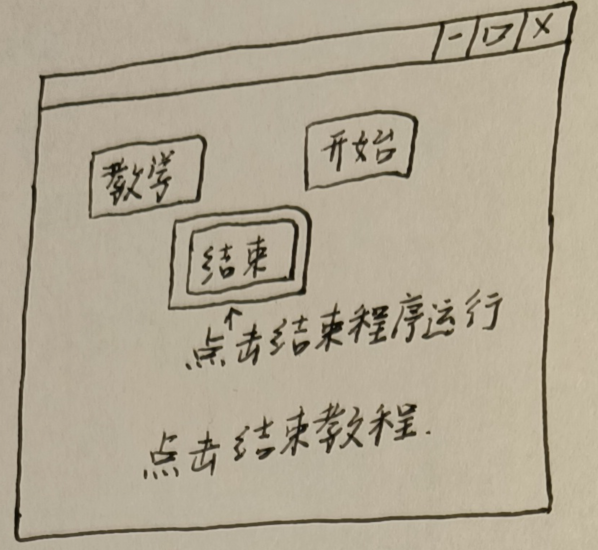 教学
开始
结束
点击结束程序运行
点击结束教程.